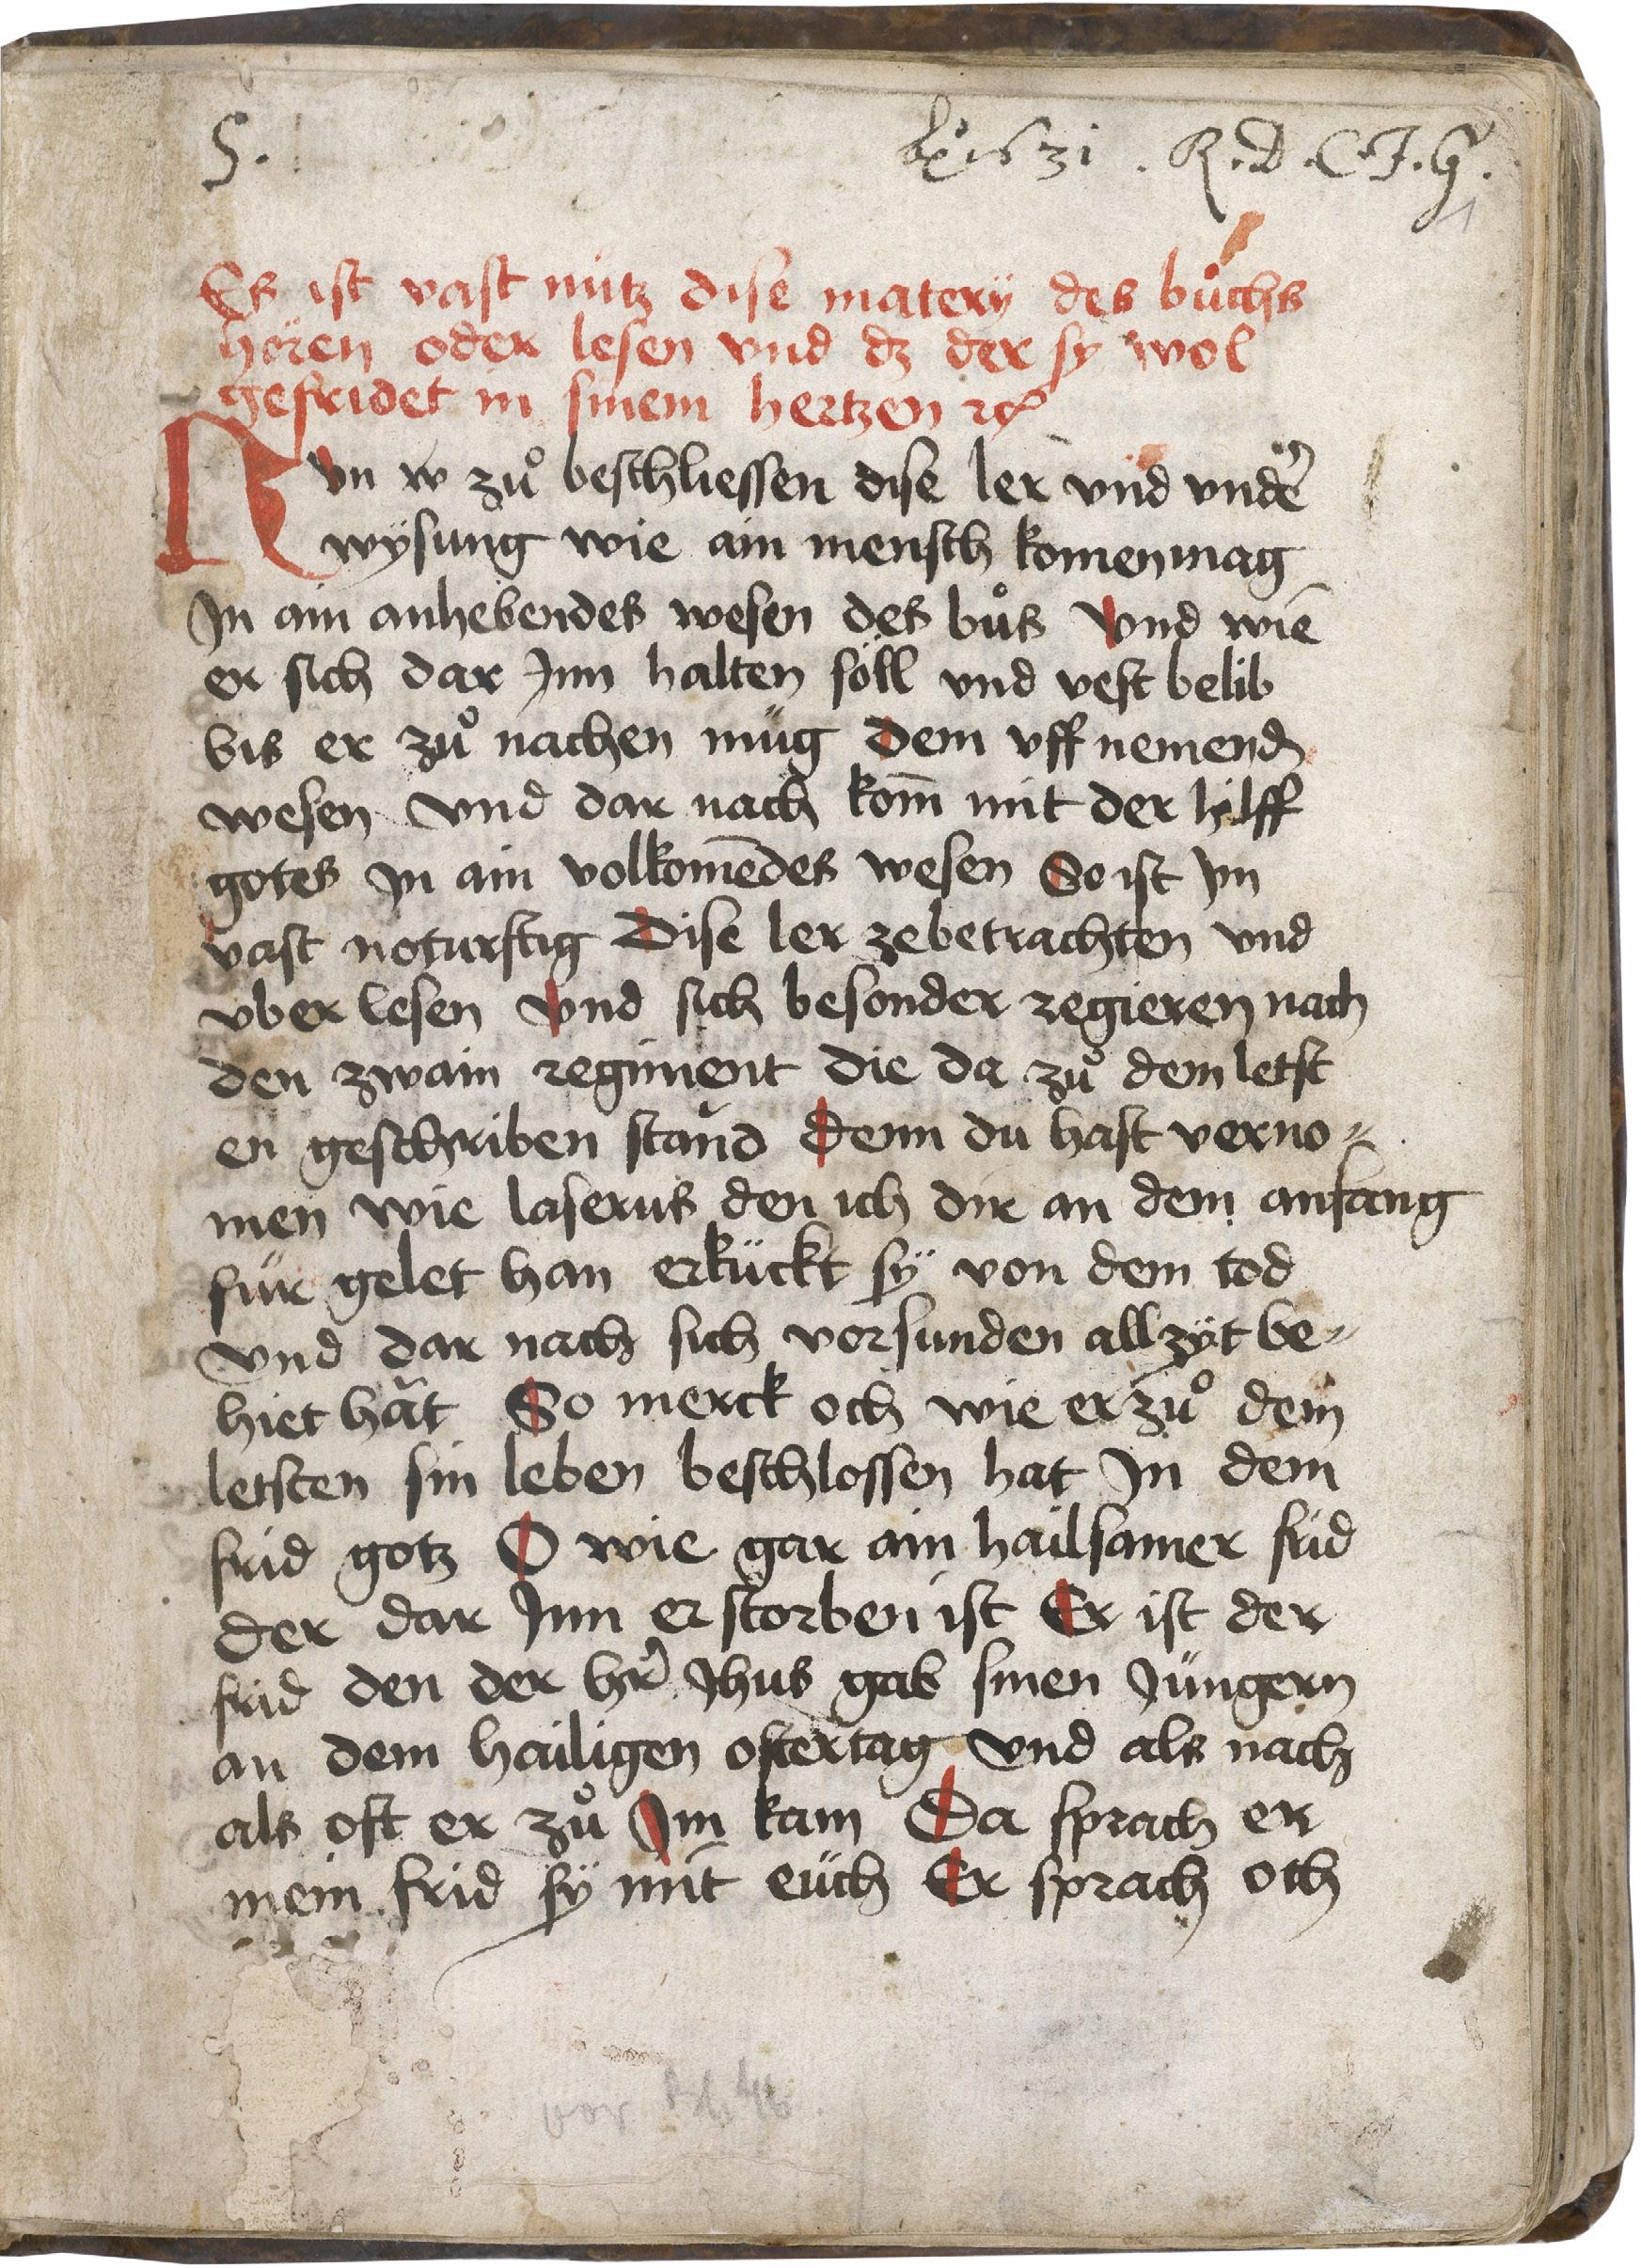 S.
R. D. C. F. G.
1
Es ist vast nütz dise matery des bůchs
hören oder lesen vnd dz der sy wol
gefridet in sinem hertzen ꝛc
Nvn w zů beschliessen dise ler vnd vnder
wÿsung wie ain mensch komen mag
In ain anhebendes wesen des bůs Vnd wie
er sich dar Inn halten söll vnd vest belib
bis er zů nachen müg dem vff nemend
wesen Vnd dar nach kom̄ mit der hilff
gotes In ain volkom̄edes wesen So ist Im
vast noturftig Dise ler zebetrachten vnd
vber lesen Vnd sich besonder regieren nach
den zwain regiment die da zů dem letst
en geschriben stand Denn du hast verno⸗
men wie laserus den ich dir an dem anfang
für gelet han erkückt sÿ von dem tod
Vnd dar nach sich vor sunden all zÿt be⸗
hiet hăt So merck och wie er zů dem
letsten sin leben beschlossen hat In dem
frid gotz O wie gar ain hailsamer frid
der dar Inn erstorben ist Er ist der
frid den der hr̄ Jhus gab sinen Jüngern
an dem hailigen ostertag Vnd als nach
als oft er zů Im kam Da sprach er
mein frid sÿ mit euch Er sprach och